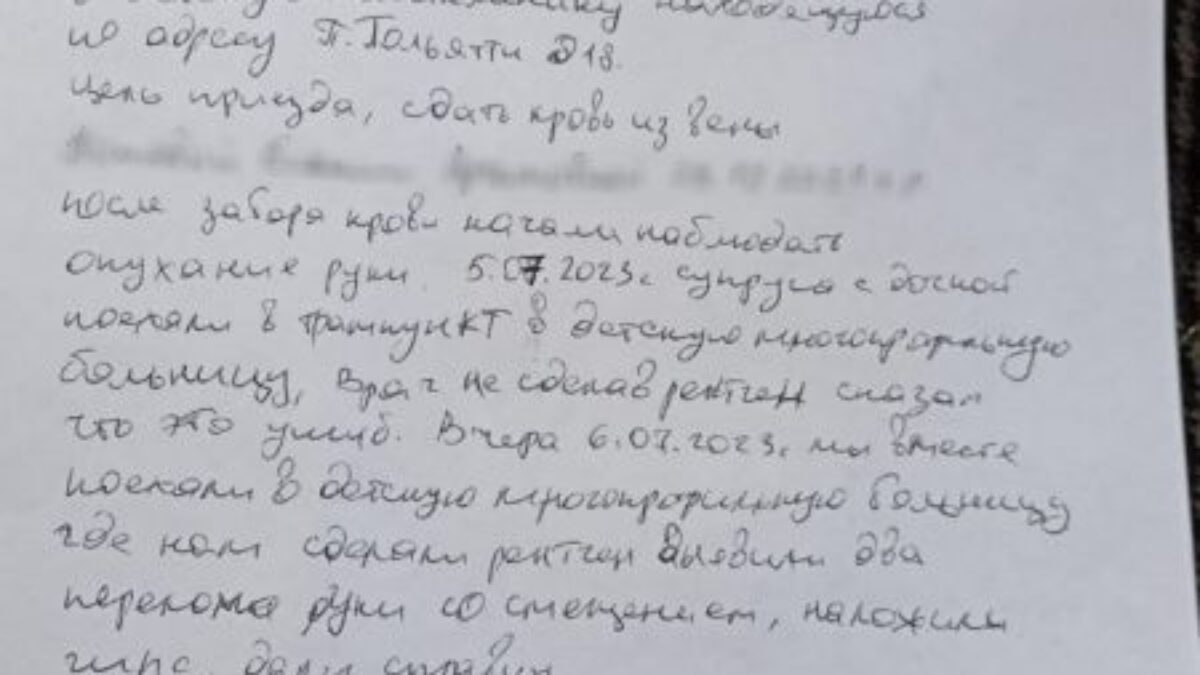 находящуюся
по адресу П.Тольятти д18.
цель приезда, сдать кровь из вены
после забора крови начали наблюдать
опухание руки. 5.07.2023г супруга с дочкой
поехали в травмпункт в детскую многопрофильную
больницу, врач не сделав рентген сказал
что это ушиб. Вчера 6.07.2023г мы вместе
поехали в детскую многопрофильную больницу
где нам сделали рентген выявили два
перелома руки со смещением, наложили
гипс, дали справку